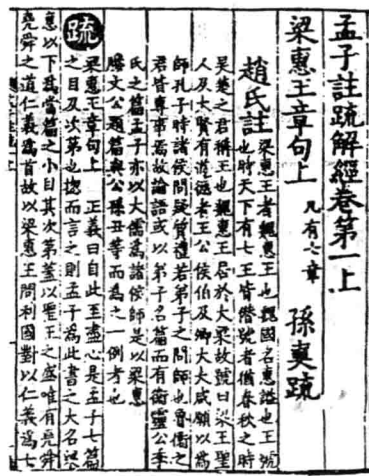 孟子註疏解經卷第一上
梁惠王章句上 凡有七章 孫奭疏
趙氏註 梁惠王者魏惠王也魏國名惠諡也王號
也時天下有七王皆僭號者猶春秋之時
吳楚之君稱王也魏惠王居於大梁故號曰梁王聖
人及大賢有道德者王公侯伯及卿大夫咸願以為
師孔子時諸侯問疑質禮若弟子之問師也魯衛之
君皆專事焉故論語或以弟子名篇而有衛靈公季
氏之篇孟子亦以大儒為諸侯師是以梁惠
滕文公題篇與公孫丑等而為之一例者也
疏 梁惠王章句上 正義曰自此至盡心是孟子七篇
之目及次第也揔而言之則孟子為此書之大名梁
惠以下為當篇之小目其次第蓋以聖王之盛唯有堯舜
堯舜之道仁義為首故以梁惠王問利國對以仁義為七